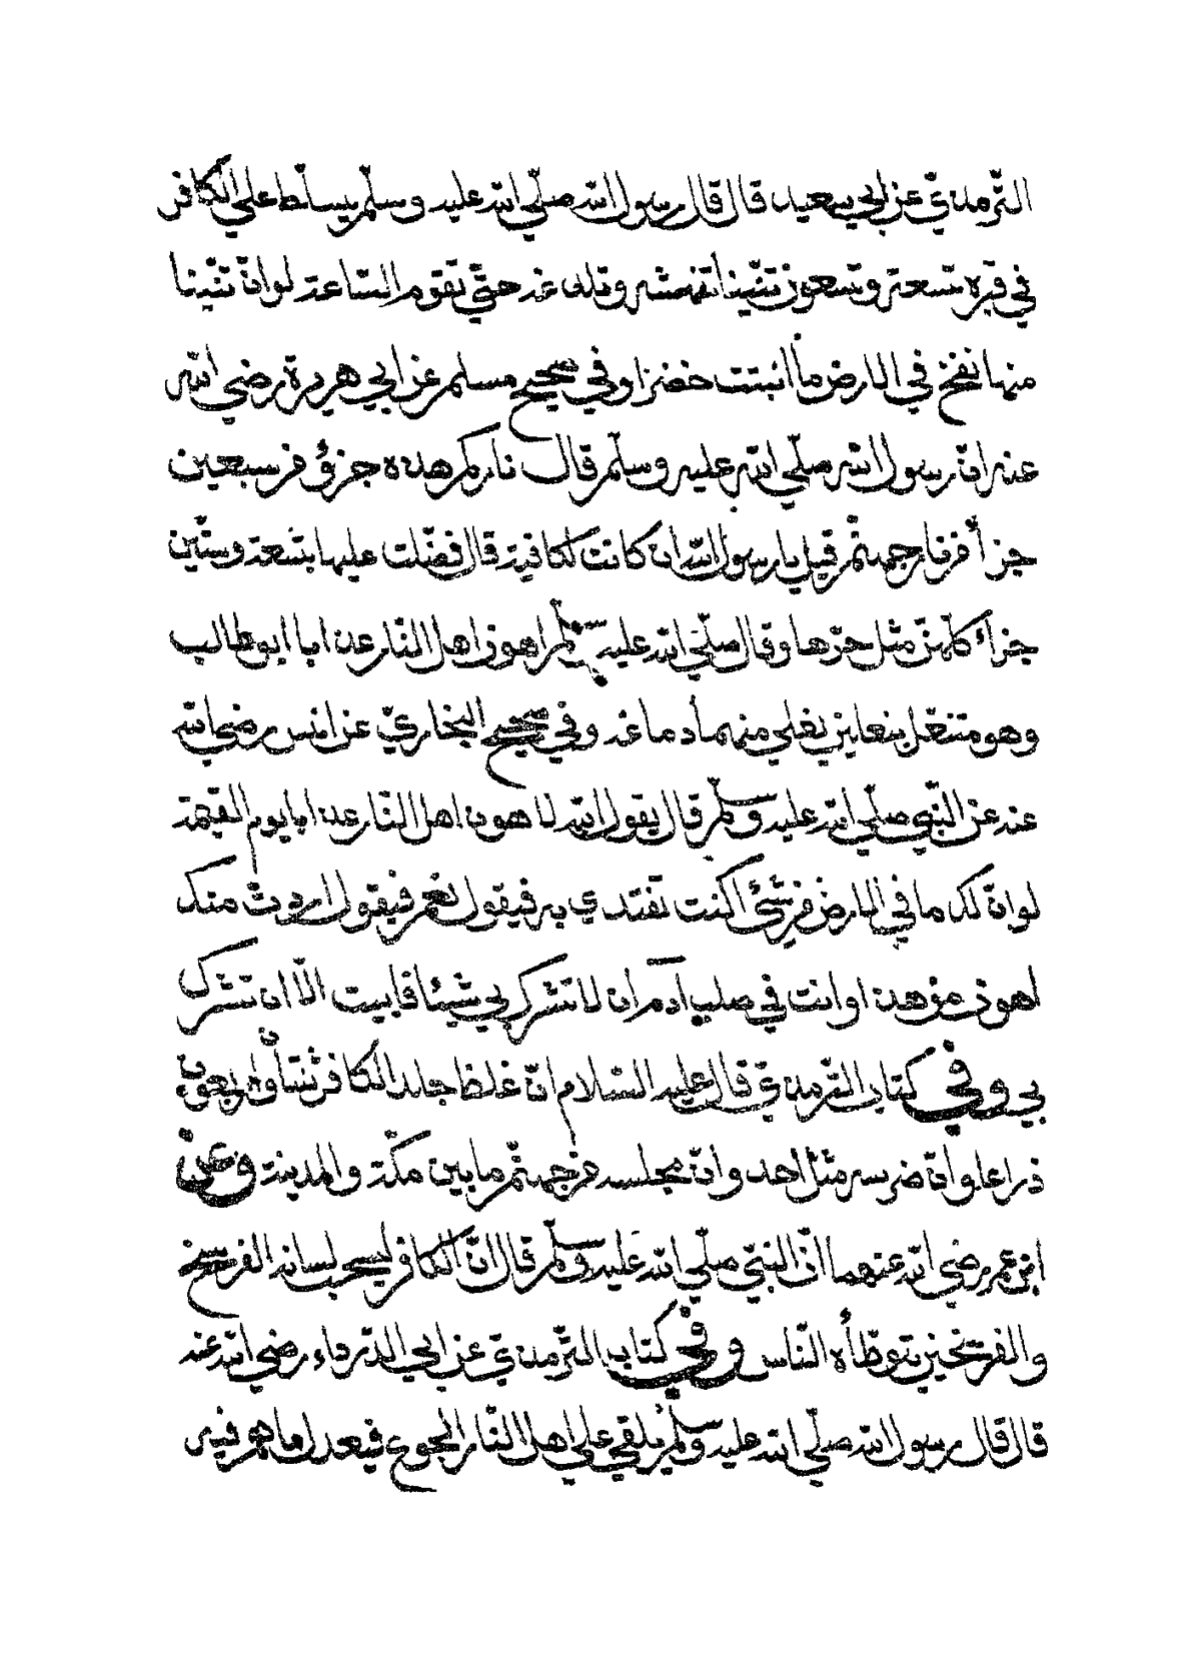 الترمذيّ عن ابي سعيد قال قال رسول الله صلّي الله عليه وسلّم يسلّط علي الكافر
في قبره تسعة وتسعون تنّينا تنهشه وتلدغه حتّي تقوم السّاعة لو انّ تنّينا
منها نفخ في الارض ما انبتت خضرا وفي صحيح مسلم عن ابي هريرة رضي الله
عنه انّ رسول الله صلّي الله عليه وسلّم قال ناركم هذه جزؤ من سبعين
جزأ من نار جهنم قيل يا رسول الله ان كانت لكافية قال فضّلت عليها بتسعة وستّين
جزأ كلّهنّ مثل حرّها وقال صلّي الله عليه وسلّم اهون اهل النّار عذابا ابو طالب
وهو متنعّل بنعلين يغلي منهما دماغه وفي صحيح البخاريّ عن انس رضي الله
عنه عن النّبي صلّي الله عليه وسلّم قال يقول الله لاهون اهل النّار عذابا يوم القيمة
لو انّ لك ما في الارض من شئ اكنت تفتدي به فيقول نعم فيقول اردت منك
اهون من هذا وانت في صلب آدم ان لا تشرك بي شيئا فابيت الّا ان تشرك
بي وفي كتاب الترمذيّ قال عليه السّلام انّ غلظ جلد الكافر اثنتان واربعون
ذراعا وانّ ضرسه مثل احد وانّ مجلسه من جهنّم ما بين مكّة والمدينة وعن
ابن عمر رضي الله عنهما انّ النبيّ صلّي الله عليه وسلّم قال انّ الكافر ليسحب لسانه الفرسخ
والفرسخين يتوطّأه النّاس وفي كتاب الترمذيّ عن ابي الدّرداء رضي الله عنه
قال قال رسول الله صلّي الله عليه وسلّم يلقي علي اهل النّار الجوع فيعدل ما هم فيه